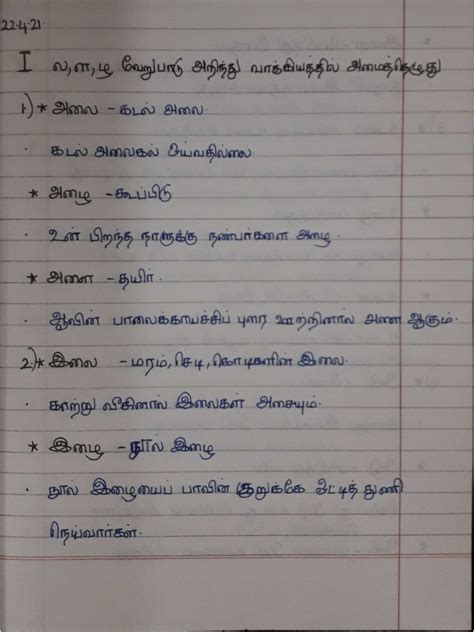 22.4.21
I ல,ள,ழ வேறுபாடு அறிந்து வாக்கியத்தில் அமைத்தெழுது
1) * அலை - கடல் அலை.
· கடல் அலைகல் ஓய்வதில்லை.
* அழை - கூப்பிடு
· உன் பிறந்த நாளுக்கு நண்பர்களை அழை.
* அளை - தயிர்.
· ஆவின் பாலைக்காயச்சிப் புரை ஊற்றினால் அணை ஆகும்.
2) * இலை - மரம், செடி, கொடிகளின் இலை.
· காற்று வீசினால் இலைகள் அசையும்.
* இழை - நூல் இழை
· நூல் இழையைப் பாவின் குறுக்கே ஓட்டித் துணி
நெய்வார்கள்.